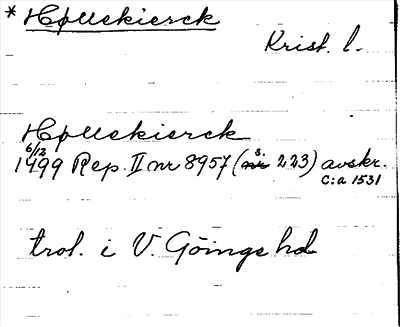 * Høllekierck
Krist. l.
Høllekierck
6/12
1499 Rep. II nr 8957 (s. 223) avskr.
C:a 1531
trol. i V. Göinge hd